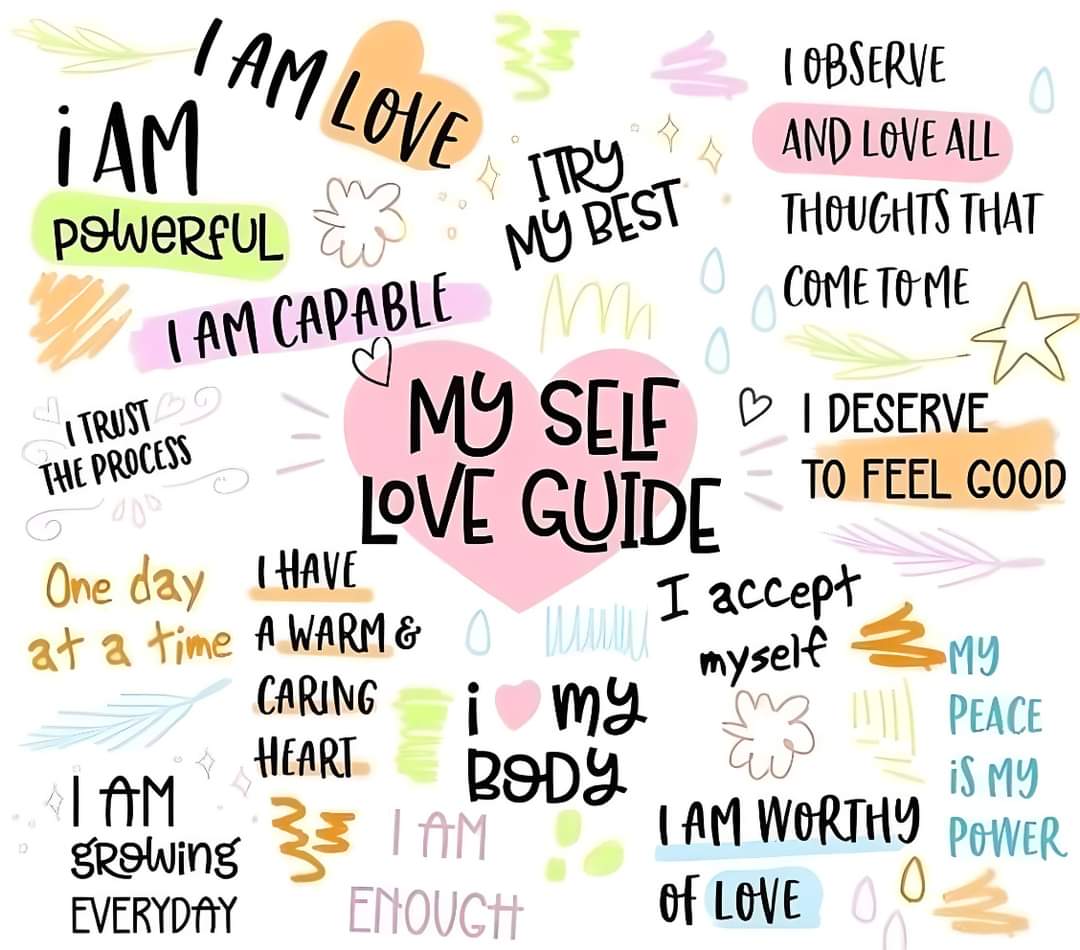 I AM LOVE
i AM
POWERFUL
I TRY
MY BEST
I OBSERVE
AND LOVE ALL
THOUGHTS THAT
COME TO ME
I AM CAPABLE
MY SELF
LOVE GUIDE
I TRUST
THE PROCESS
I DESERVE
TO FEEL GOOD
One day
at a time
I HAVE
A WARM &
CARING
HEART
I accept
myself
i my
BODY
MY
PEACE
iS MY
POWER
I AM
gROWing
EVERYDAY
I AM
ENOUGH
I AM WORTHY
OF LOVE